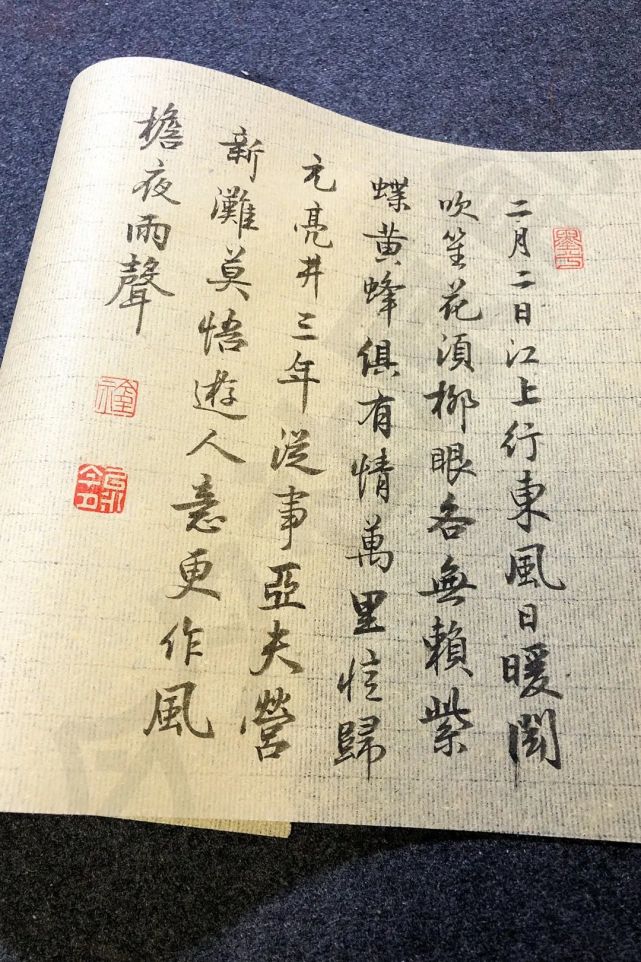 二月二日江上行東風日暖聞
吹笙花須柳眼各無賴紫
蝶黄蜂俱有情萬里憶歸
元亮井三年從事亞夫營
新灘莫悟遊人意更作風
檐夜雨聲